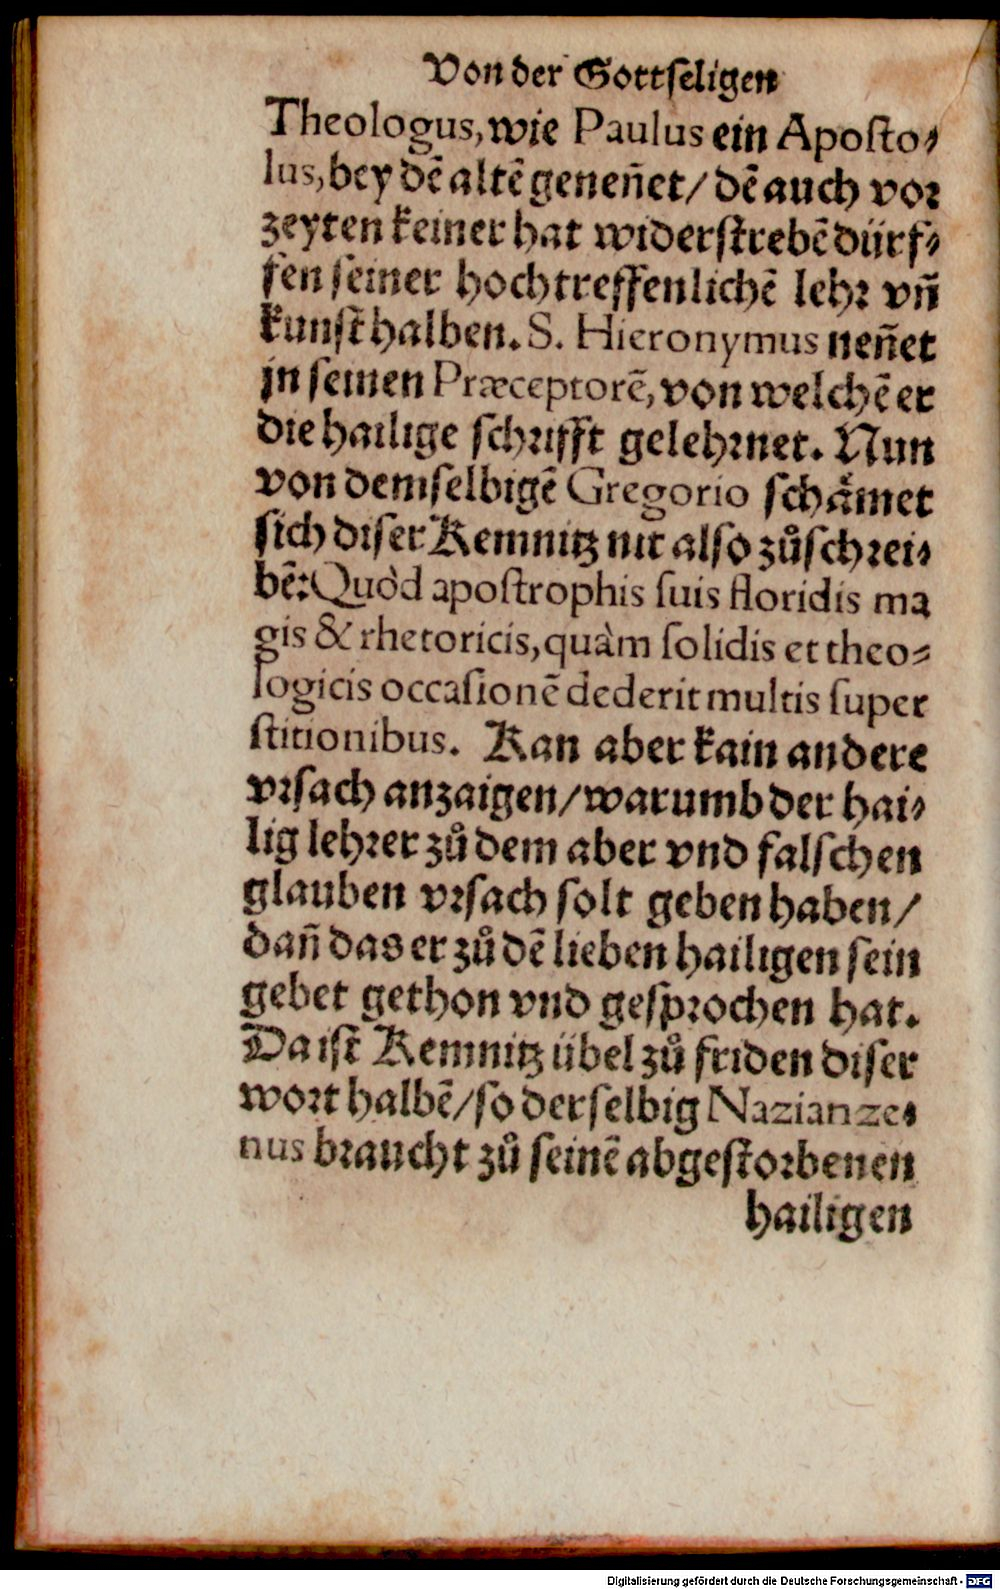 Von der Gottseligen
Theologus, wie Paulus ein Aposto⸗
lus, bey dẽ altẽ geneñet/ dẽ auch vor
zeyten keiner hat widerstrebẽ dürf⸗
fen seiner hochtreffenlichẽ lehr vñ
kunst halben. S. Hieronymus neñet
jn seinen Præceptorẽ, von welchẽ er
die hailige schrifft gelehrnet. Nun
von demselbigẽ Gregorio schämet
sich diser Kemnitz nit also zůschrei⸗
bẽ: Quòd apostrophis suis floridis ma
gis & rhetoricis, quàm solidis et theo⸗
logicis occasionẽ dederit multis super
stitionibus. Kan aber kain andere
vrsach anzaigen/ warumb der hai⸗
lig lehrer zů dem aber vnd falschen
glauben vrsach solt geben haben/
dañ das er zů dẽ lieben hailigen sein
gebet gethon vnd gesprochen hat.
Da ist Kemnitz übel zů friden diser
wort halbẽ/ so derselbig Nazianze⸗
nus braucht zů seinẽ abgestorbenen
hailigen
Digitalisierung gefördert durch die Deutsche Forschungsgemeinschaft - DFG